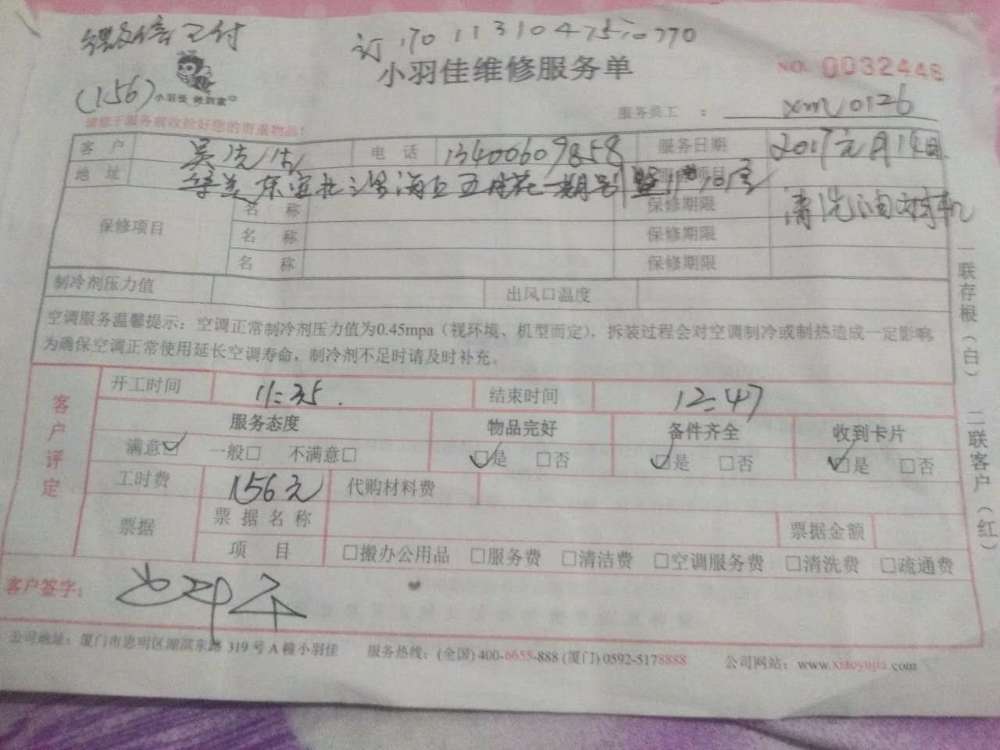 微信已付
订170113104751770
小羽佳维修服务单
(156) 小羽佳
NO. 0032446
请您于服务前收捡好您的贵重物品!
服务员工: xm10126
客户 电话 13400609858 服务日期 2017元月14日
地址
清洗油烟机
保修项目 名称 保修期限
名称 保修期限
名称 保修期限
制冷剂压力值 出风口温度
空调服务温馨提示:空调正常制冷剂压力值为0.45mpa(视环境、机型而定),拆装过程会对空调制冷或制热造成一定影响
为确保空调正常使用延长空调寿命,制冷剂不足时请及时补充。
客户评定
开工时间 11:35. 结束时间 12:47
服务态度 物品完好 备件齐全 收到卡片
满意☑ 一般□ 不满意□ ☑是 □否 ☑是 □否 ☑是 □否
工时费 156元 代购材料费
票据 票据名称 票据金额
项目 □搬办公用品 □服务费 □清洁费 □空调服务费 □清洗费 □疏通费
客户签字:
公司地址:厦门市思明区湖滨东路319号A幢小羽佳 服务热线:(全国)400-6655-888 (厦门)0592-5178888 公司网站:www.xiaoyujia.com
一联存根(白) 二联客户(红)